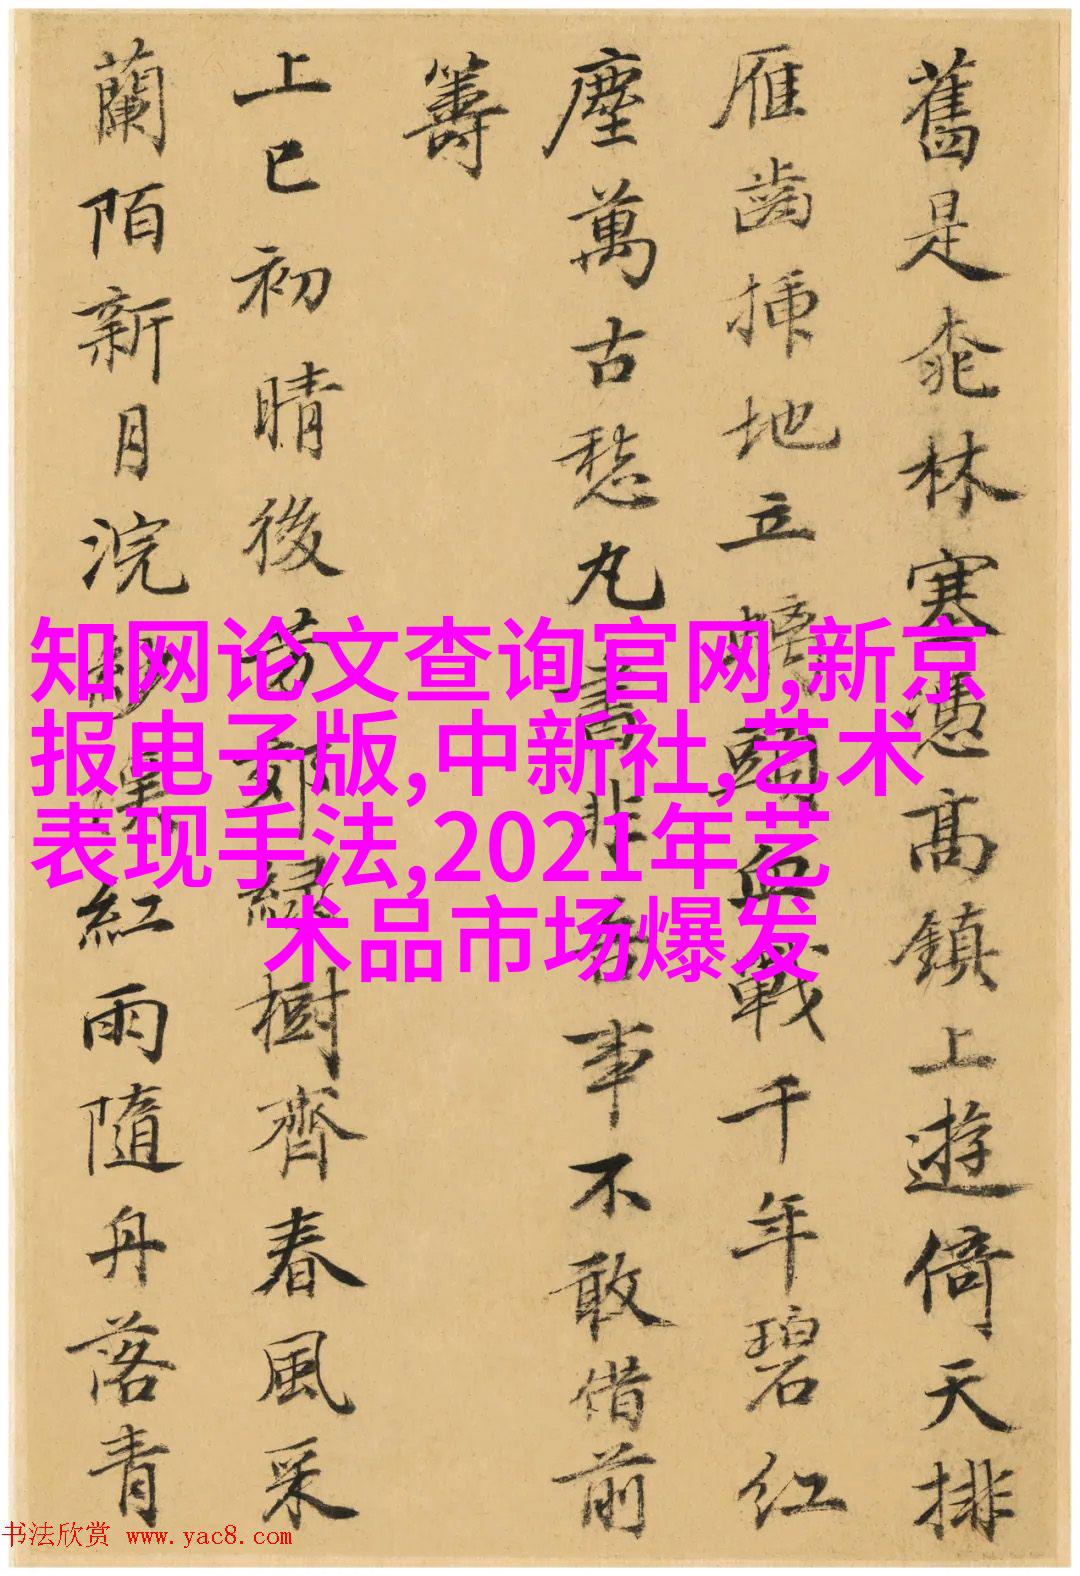 舊是
林寒憑高鎮上遊倚天排
雁齒插地立
頭血戰千年碧紅
塵萬古愁九
書非吾事不敢借前
籌
上巳初晴後芳郊綠樹齊春風采
蘭陌新月浣紗溪紅雨隨丹落青
知网论文查询官网,新京
报电子版,中新社,艺术
表现手法,2021年艺
术品市场爆发
书法欣赏 www.yac8.com